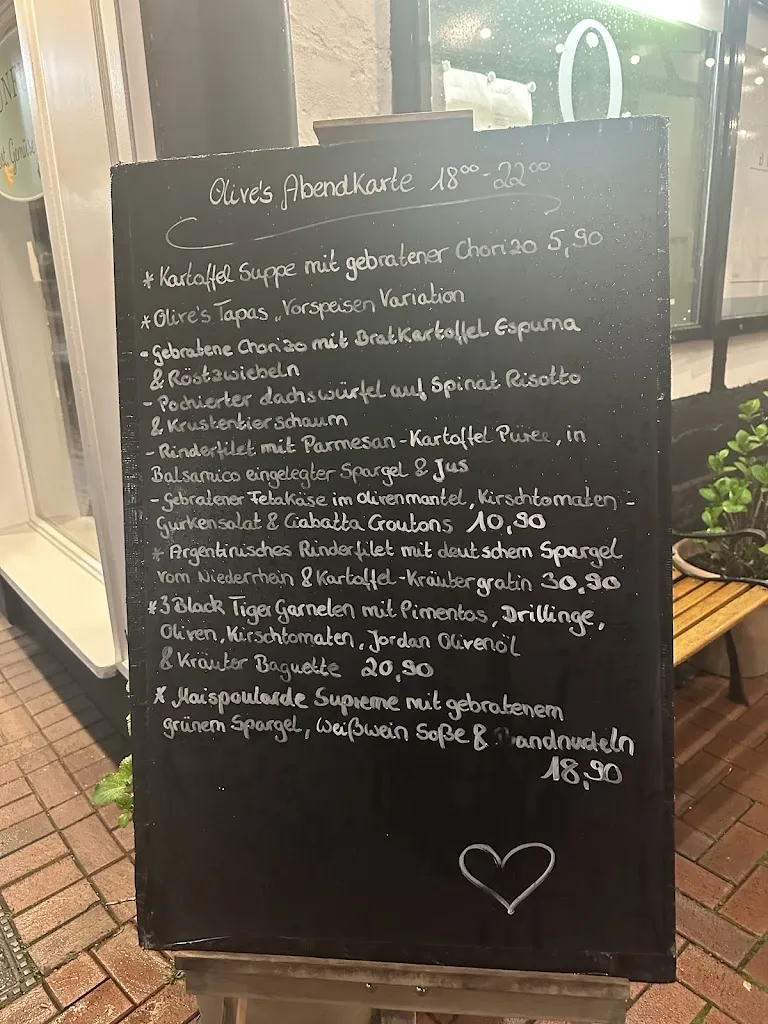 Olive's Abendkarte 18⁰⁰-22⁰⁰
* Kartoffel Suppe mit gebratener Chorizo 5,90
* Olive's Tapas „Vorspeisen Variation
- Gebratene Chorizo mit BratKartoffel Espuma
& Röstzwiebeln
- Pochierter dachswürfel auf Spinat Risotto
& Krustentierschaum
- Rinderfilet mit Parmesan-Kartoffel Püree, in
Balsamico eingelegter Spargel & Jus
- gebratener Fetakäse im Olivenmantel, Kirschtomaten-
gurkensalat & Ciabatta Croutons 10,90
* Argentinisches Rinderfilet mit deutschem Spargel
vom Niederrhein & Kartoffel-Kräutergratin 30,90
* 3 Black Tiger Garnelen mit Pimentos, Drillinge,
Oliven, Kirschtomaten, Jordan Olivenöl
& Kräuter Baguette 20,90
* Maispoularde Supreme mit gebratenem
grünem Spargel, Weißwein Soße & Bandnudeln
18,90